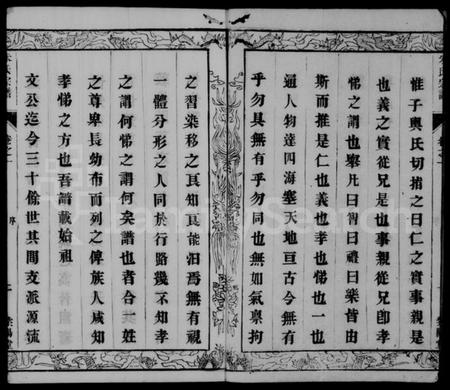 惟子輿氏切指之曰仁之實事親是
也義之實從兄是也事親從兄卽孝
悌之謂也寧凡曰智曰禮曰樂皆由
斯而推是仁也義也孝也悌也一也
通人物達四海塞天地亘古今有
乎勿具無有乎勿同也無如氣禀拘
之習染移之良知良能汩焉無有視
一體分形之人同於行路幾不知孝
之謂何悌之謂何矣譜也者合姓
之尊卑長幼布而列之俾族人咸知
孝悌之方也吾譜載始祖
文公迄今三十餘世其間支派源流
序
FamilySearch